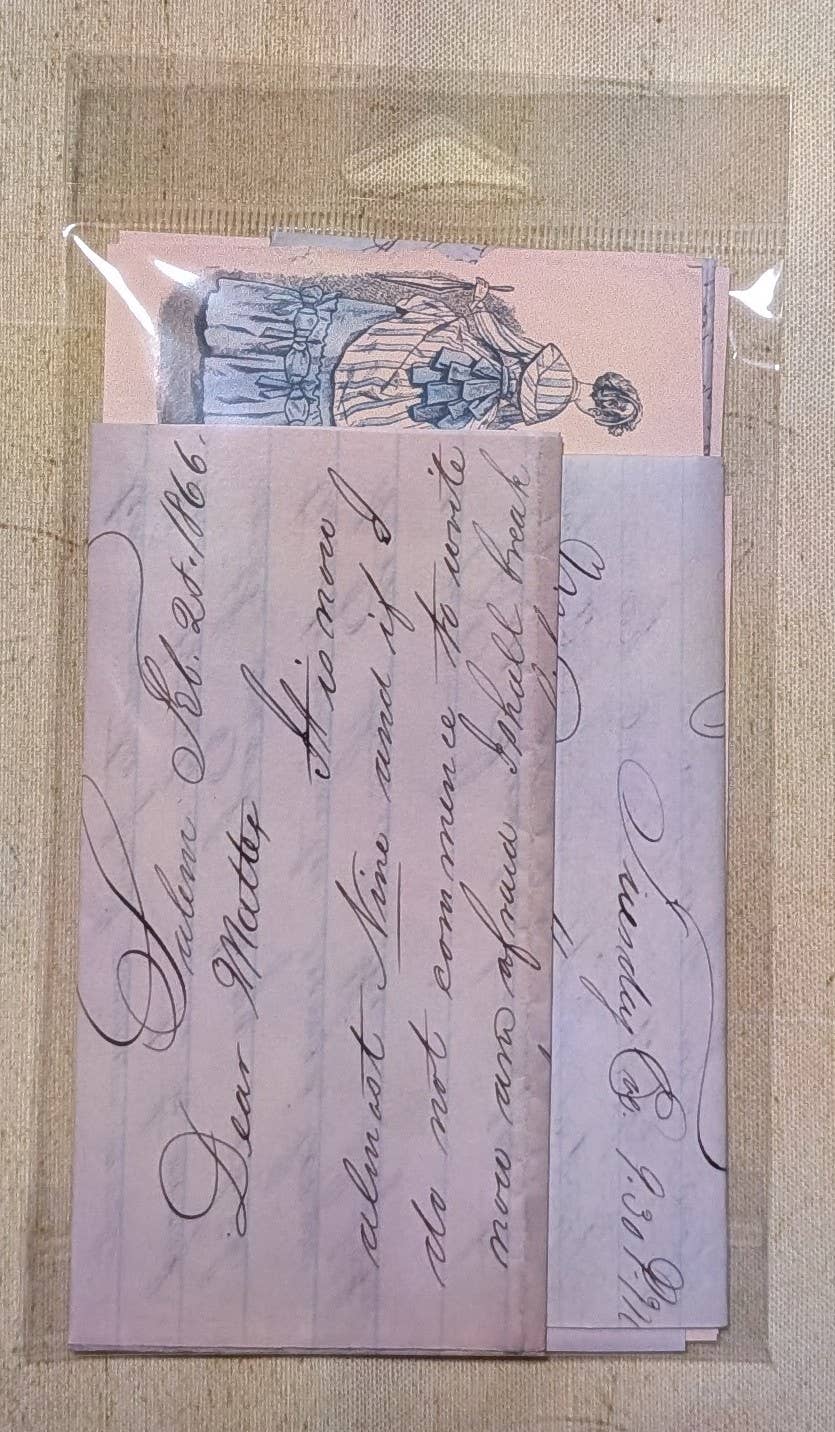 Salem Feb. 25. 1866.
Dear Mattie,
It is now
almost Nine and if I
do not commence to write
now am afraid I shall break
Friendly Eve. 9.30 P.M